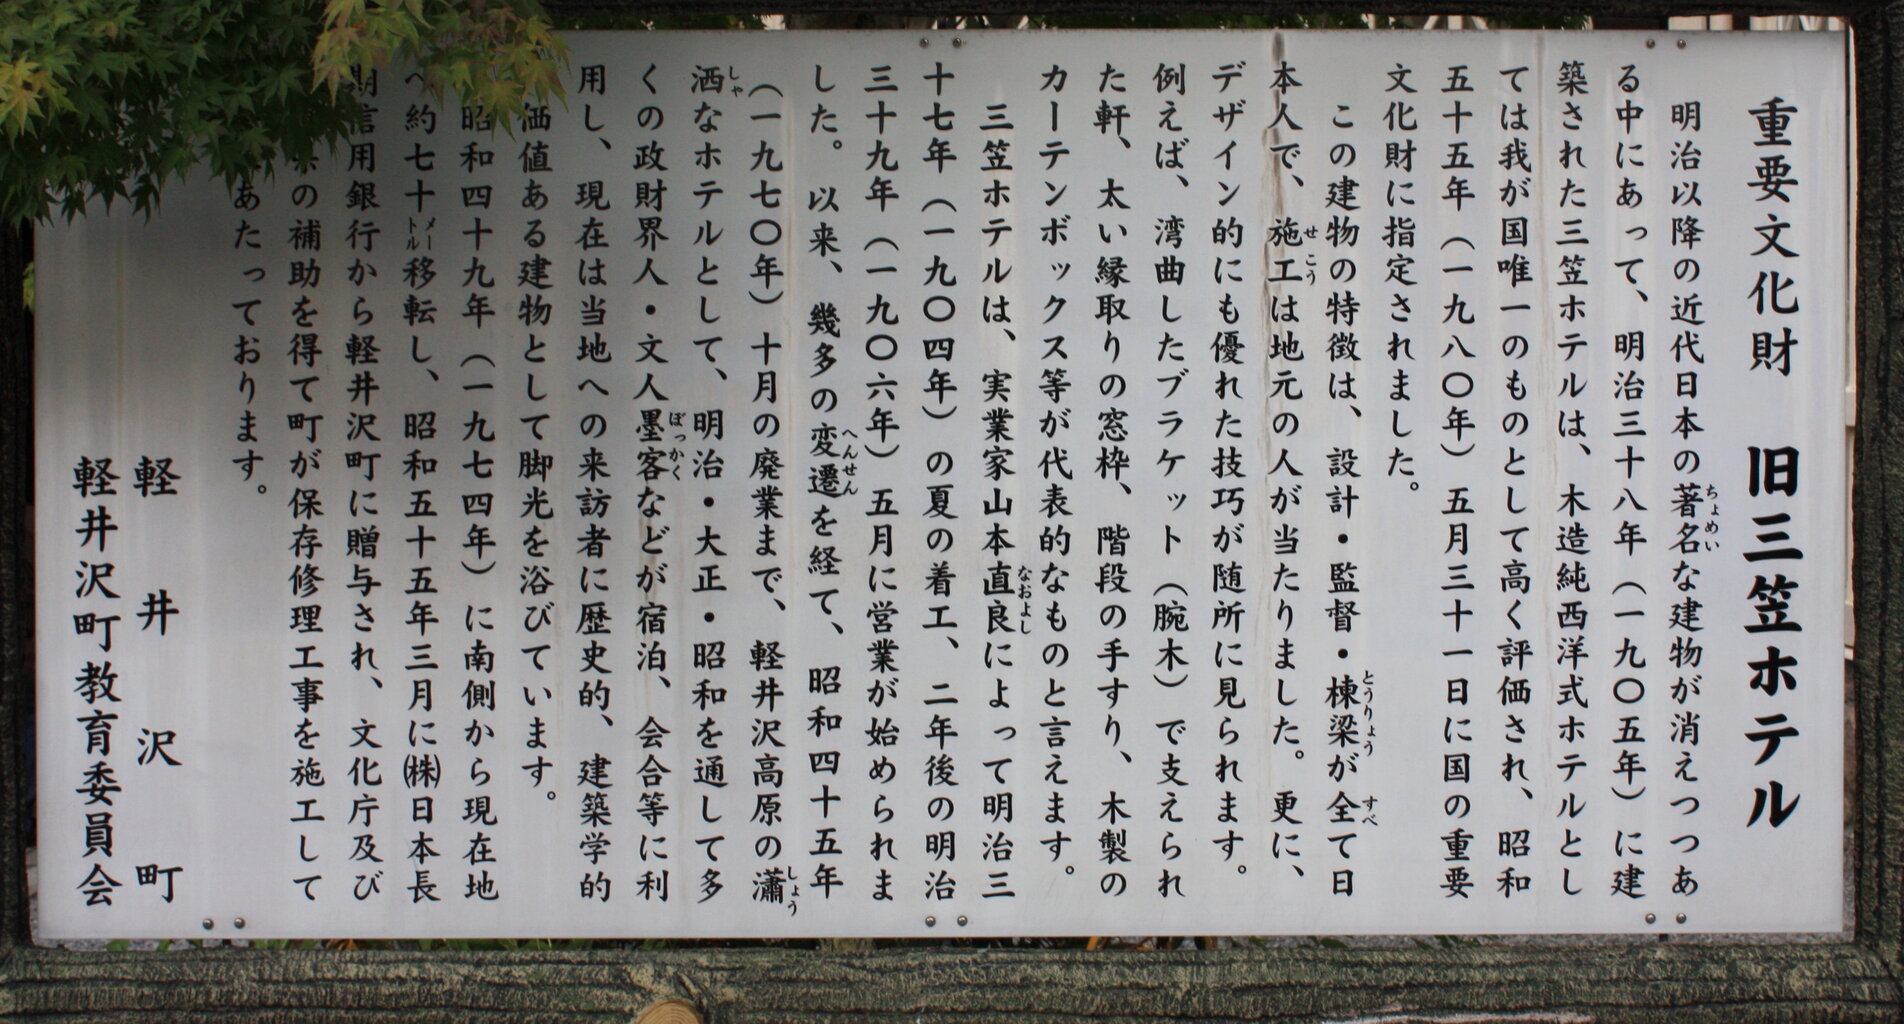 重要文化財　旧三笠ホテル
明治以降の近代日本の著名な建物が消えつつあ
る中にあって、明治三十八年（一九〇五年）に建
築された三笠ホテルは、木造純西洋式ホテルとし
ては我が国唯一のものとして高く評価され、昭和
五十五年（一九八〇年）五月三十一日に国の重要
文化財に指定されました。
この建物の特徴は、設計・監督・棟梁が全て日
本人で、施工は地元の人が当たりました。更に、
デザイン的にも優れた技巧が随所に見られます。
例えば、湾曲したブラケット（腕木）で支えられ
た軒、太い縁取りの窓枠、階段の手すり、木製の
カーテンボックス等が代表的なものと言えます。
三笠ホテルは、実業家山本直良によって明治三
十七年（一九〇四年）の夏の着工、二年後の明治
三十九年（一九〇六年）五月に営業が始められま
した。以来、幾多の変遷を経て、昭和四十五年
（一九七〇年）十月の廃業まで、軽井沢高原の瀟
洒なホテルとして、明治・大正・昭和を通して多
くの政財界人・文人墨客などが宿泊、会合等に利
用し、現在は当地への来訪者に歴史的、建築学的
価値ある建物として脚光を浴びています。
昭和四十九年（一九七四年）に南側から現在地
へ約七十メートル移転し、昭和五十五年三月に㈱日本長
期信用銀行から軽井沢町に贈与され、文化庁及び
の補助を得て町が保存修理工事を施工して
あたっております。
軽井沢町
軽井沢町教育委員会